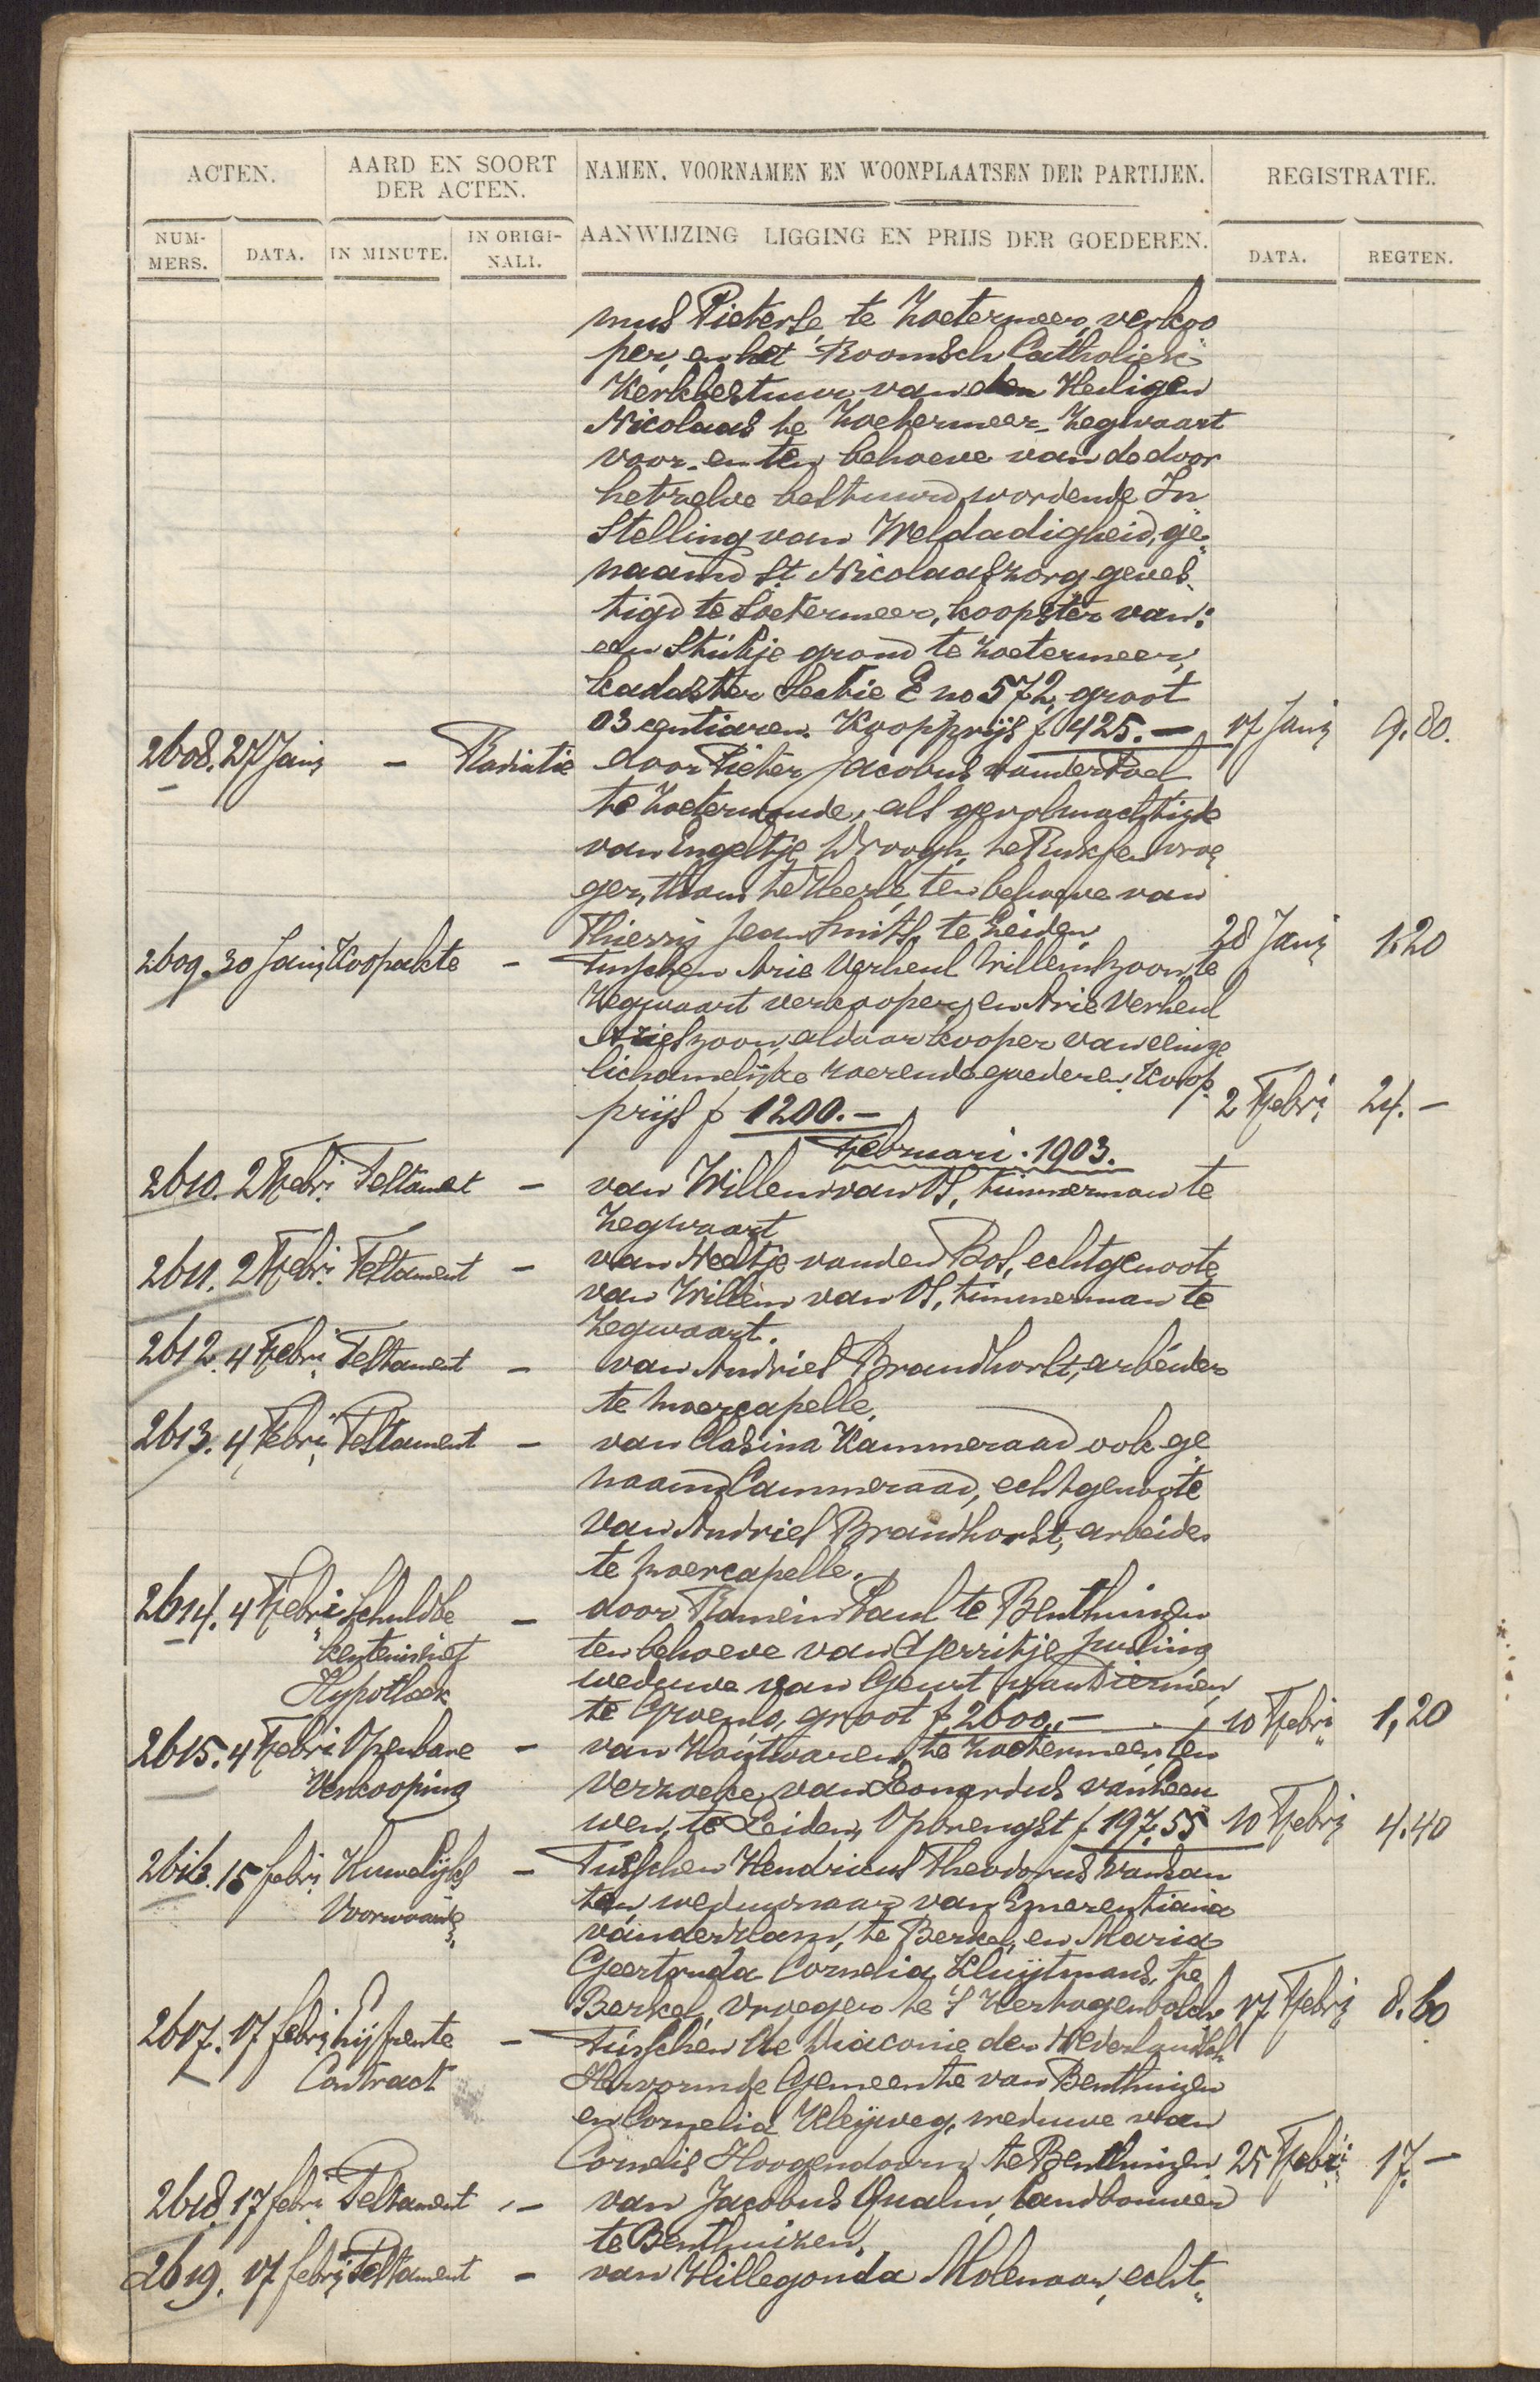 ACTEN. AARD EN SOORT DER ACTEN. NAMEN, VOORNAMEN EN WOONPLAATSEN DER PARTIJEN. REGISTRATIE.
NUM-MERS. DATA. IN MINUTE. IN ORIGI-NALI. AANWIJZING LIGGING EN PRIJS DER GOEDEREN. DATA. REGTEN.
mus Pieterse, te Zoetermeer, verkoo
per, en het Roomsch Catholiek
Kerkbestuur van den Heiligen
Nicolaas te Zoetermeer-Zegwaart
voor- en ten behoeve van de door
hetzelve bestuurd wordende In
stelling van Weldadigheid, ge-
naamd St Nicolaaszorg geves-
tigd te Zoetermeer, koopster van:
een stukje grond te Zoetermeer,
kadaster sectie E no 572, groot
03 centiaren. Koopprijs f 425.— 17 Jani 9.80.
2608. 27 Jani — Radiatie door Pieter Jacobus van der Poel
te Zoeterwoude, als gevolmachtigde
van Engeltje Droogh, te vroe
ger, thans te Heerle, ten behoeve van
Thierry Jean Smits, te Leiden, 28 Jani 1.20
2609. 30 Jani Koopakte — Tusschen Arie Verheul Willemszoon, te
Zegwaart verkooper, en Arie Verheul
Arieszoon, aldaar kooper van eenige
lichamelijke roerende goederen. Koop-
prijs f 1200.— 2 Febri 24.—
Februari. 1903.
2610. 2 Febri Testamet — van Willem van Os, timmerman te
Zegwaart
2611. 2 Febri Testament — van Neeltje van den Bos, echtgenoote
van Willem van Os, timmerman te
Zegwaart.
2612. 4 Febri Testament — van Andries Brandhorst, arbeider
te Moercapelle,
2613. 4 Febri Testament — van Clasina Kammeraad ook ge
naamd Cammeraad, echtgenoote
van Andries Brandhorst, arbeider
te Moercapelle.
2614. 4 Febri Schuldbe — door Romein Paul te Benthuizen
kentenis of ten behoeve van Gerritje
Hypotheek weduwe van Geurt van Diermen,
te Groenlo, groot f 2600,.— 10 Febri 1,20
2615. 4 Febri Openbare — van Houtwaren, te Zoetermeer, ten
Verkooping verzoeke van Leonardus van Leeu
wen, te Leiden, Opbrengst f 197.55 10 Febri 4.40
2616. 15 febri Huwelijks — Tusschen Hendricus Theodorus van San
Voorwaarde ten, weduwnaar van Emerentiana
van der Klam, te Berkel, en Maria
Geertruda Cornelia Kluijtmans, te
Berkel, vroeger te 's Hertogenbosch 17 Febri 8.60
2617. 17 febri Lijfrente — Tusschen De Diaconie der Nederlandsch
Contract Hervormde Gemeente van Benthuizen
en Cornelia Kleijweg, weduwe van
Cornelis Hoogendoorn te Benthuizen 25 Febri 17.—
2618. 17 febri Testament — van Jacobus Qualm, landbouwer
te Benthuizen.
2619. 17 febri Testament — van Hillegonda Molenaar, echt-